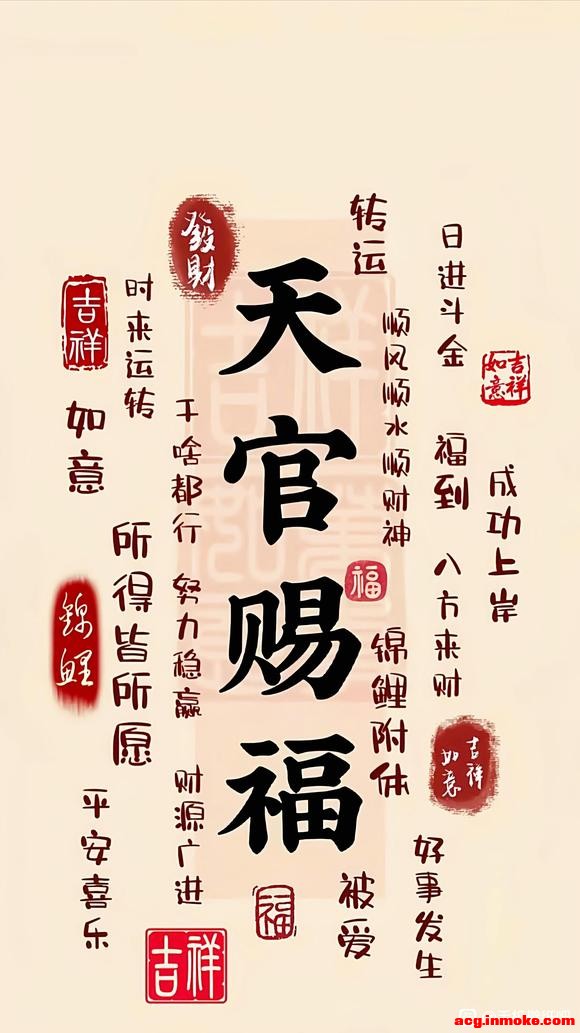 天官赐福
發財
吉祥
时来运转
如意
干啥都行
努力稳赢
财源广进
所得皆所愿
錦鯉
平安喜乐
吉祥
福
转运
顺风顺水顺财神
福
锦鲤附体
被爱
日进斗金
吉祥如意
福到
八方来财
成功上岸
吉祥如意
好事发生
acg.inmoke.com